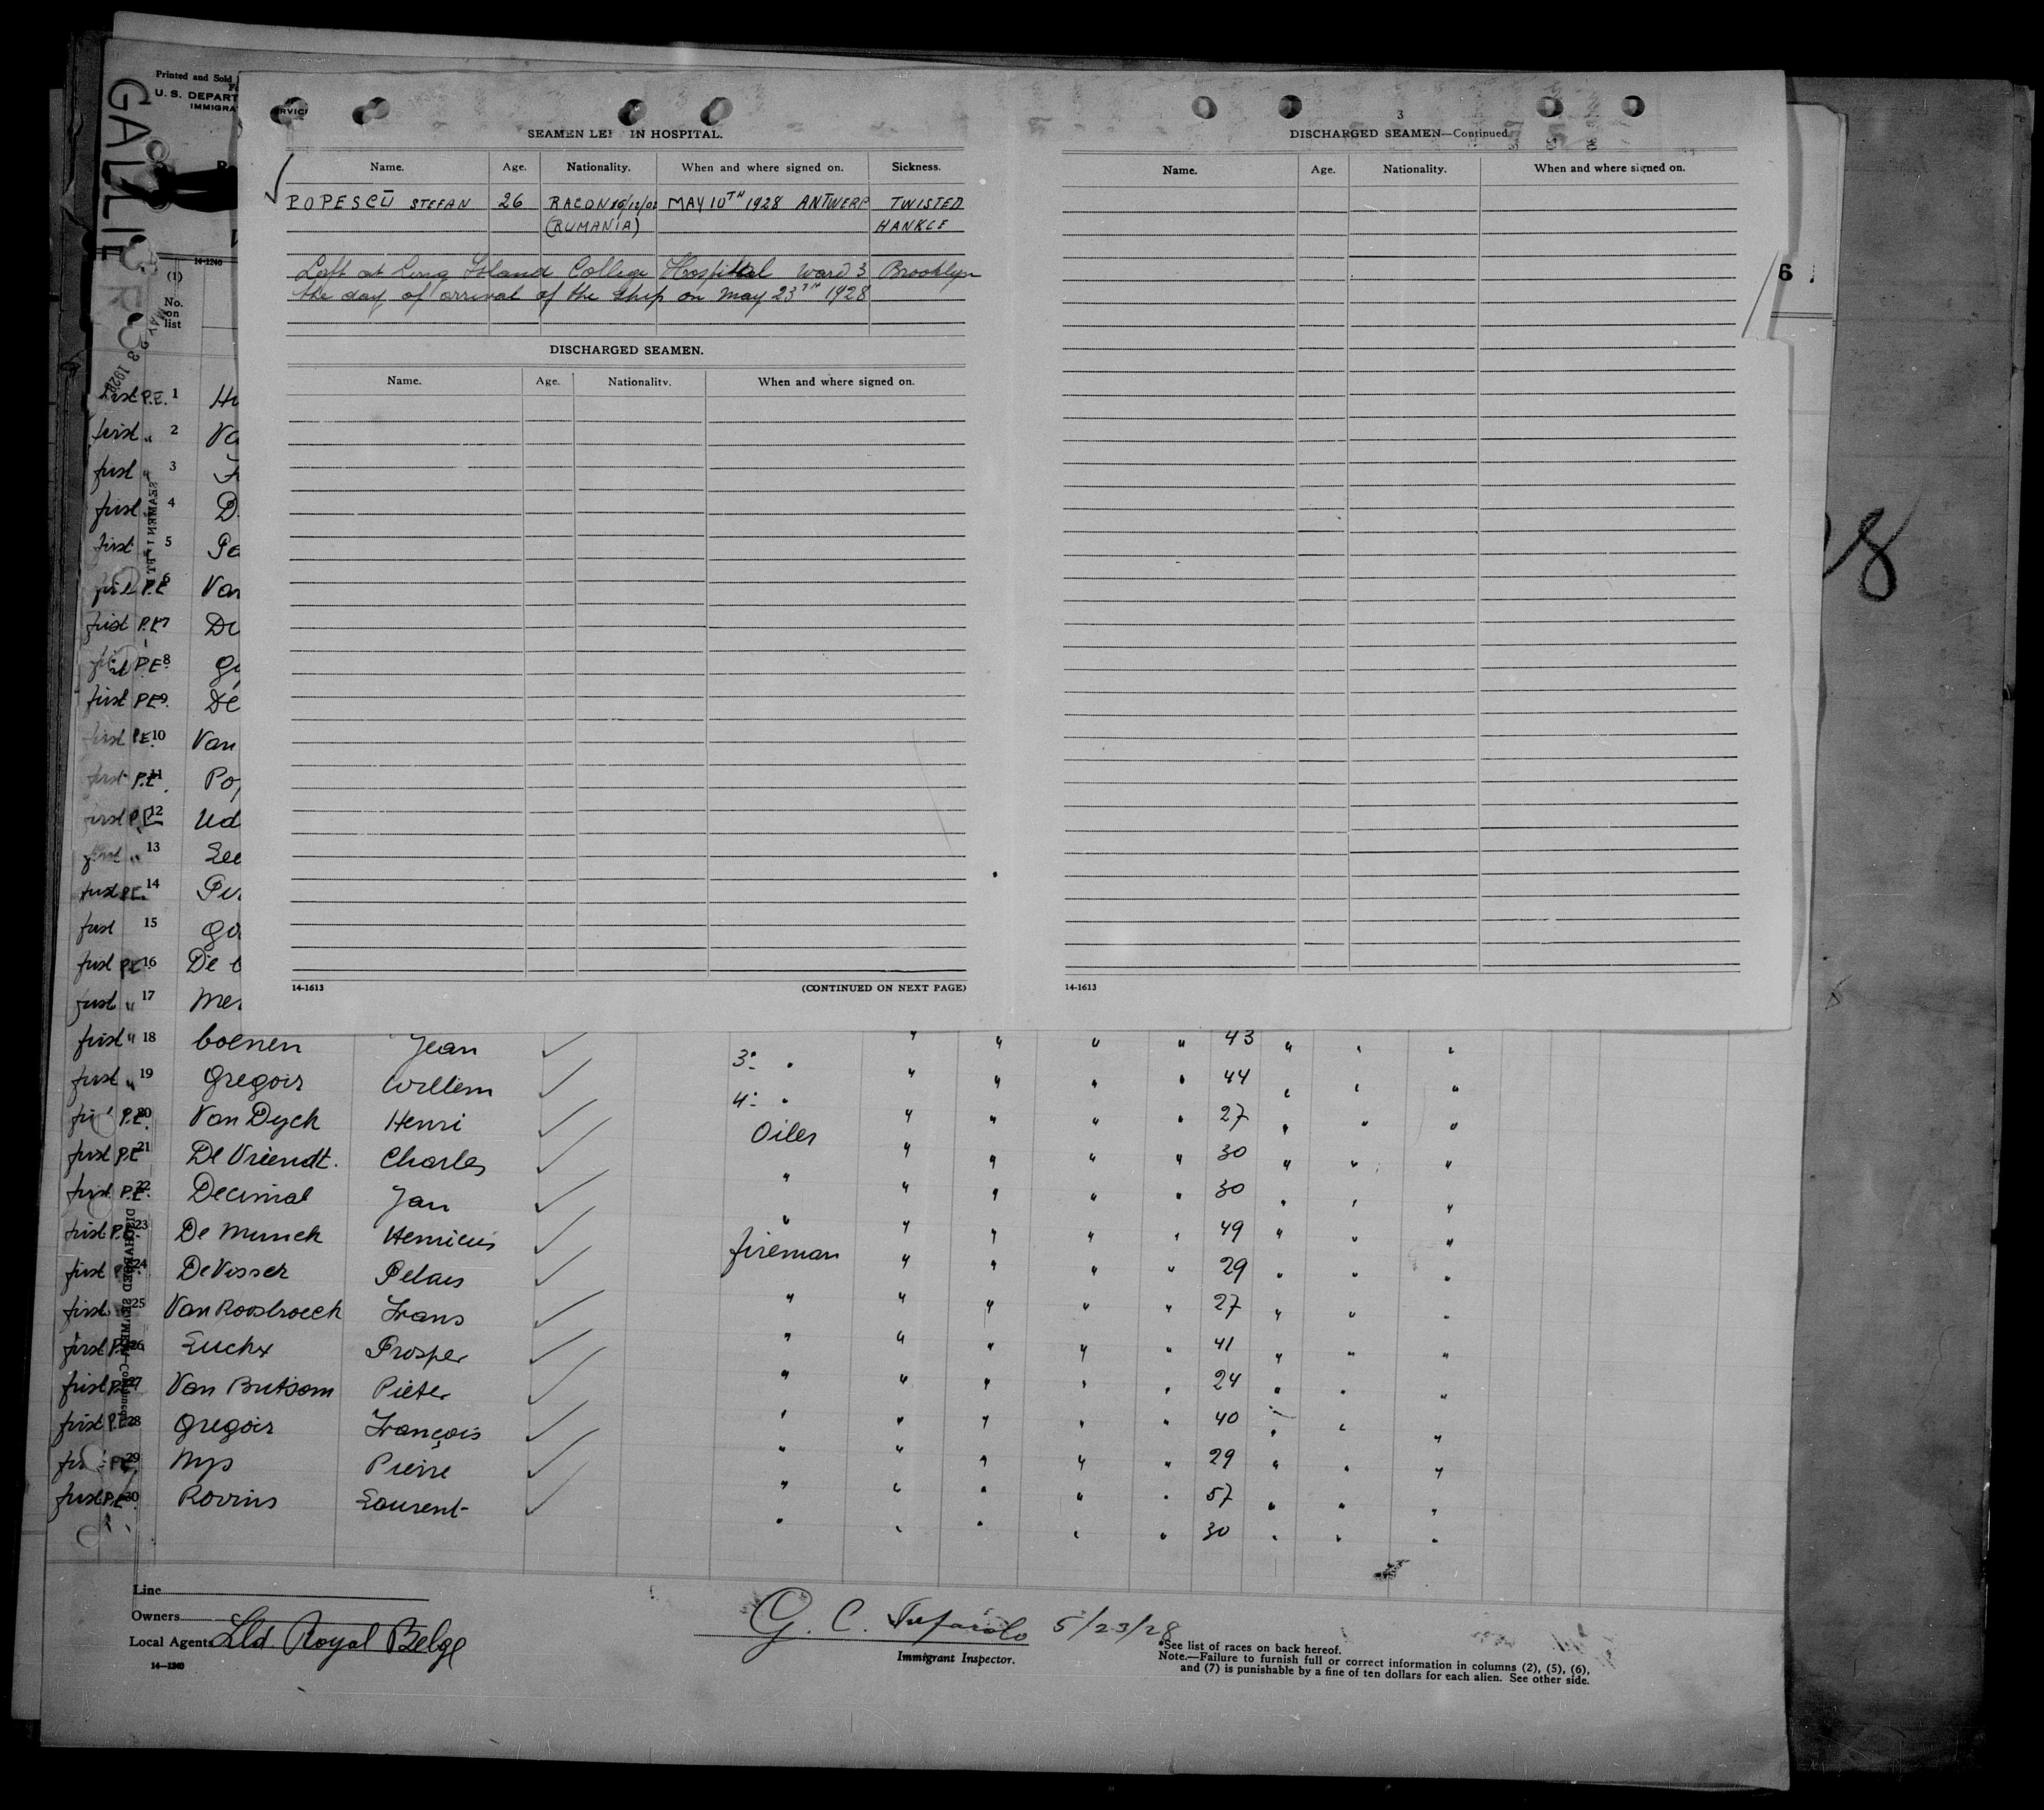 GALLIE
Printed and Sold
U. S. DEPART
IMMIGRA
RVICE
SEAMEN LEF IN HOSPITAL.
Name. Age. Nationality. When and where signed on. Sickness.
POPESCŪ STEFAN 26 RACON MAY 10TH 1928 ANTWERP TWISTED
(RUMANIA) HANKLE
Left at Long Island College Hospital Ward 3 Brooklyn
the day of arrival of the ship on May 23TH 1928
DISCHARGED SEAMEN.
Name. Age. Nationality. When and where signed on.
14-1613 (CONTINUED ON NEXT PAGE)
3
DISCHARGED SEAMEN—Continued
Name. Age. Nationality. When and where signed on.
14-1613
6
8
14-1240
(1)
No.
on
list
MAY 23 1928
first P.E. 1 Hu
first " 2 Va
first " 3
first 4 D
first 5 Pe
first P.E 6 Van
first P.E 7 De
first P.E 8 Gu
first P.E 9 De
first P.E. 10 Van
first P.E. 11 Po
first P.E 12 Ud
first " 13 Lee
first P.E. 14 Pu
first 15 Go
first P.E 16 De
first " 17 Mer
first " 18 Coenen Jean 3: " " " " " 43 " " "
first " 19 Gregoir Willem 4: " " " " " 44 " " "
P.E. 20 Van Dyck Henri Oiler " " " " 27 " " "
first P.E 21 De Vriendt. Charles " " " " " 30 " " "
first P.E. 22 Decimal Jan " " " " " 30 " " "
first P.E. 23 De Munck Henricus fireman " " " " 49 " " "
first 24 De Visser Pelais " " " " " 29 " " "
first 25 Van Roosbroeck Frans " " " " " 27 " " "
first P.E. 26 Luckx Prosper " " " " " 41 " " "
first P.E. 27 Van Butsom Pieter " " " " " 24 " " "
first P.E. 28 Gregoir François " " " " " 40 " " "
P.E. 29 Nys Pierre " " " " " 29 " " "
first P.E. 30 Rovins Laurent " " " " " 57 " " "
" " " " " 30 " " "
SEAMEN LEFT I
DISCHARGED SEAMEN—Continued
Line
Owners
Local Agents Lld Royal Belge
14—1240
G. C. Tufarolo 5/23/28
Immigrant Inspector.
*See list of races on back hereof.
Note.—Failure to furnish full or correct information in columns (2), (5), (6),
and (7) is punishable by a fine of ten dollars for each alien. See other side.